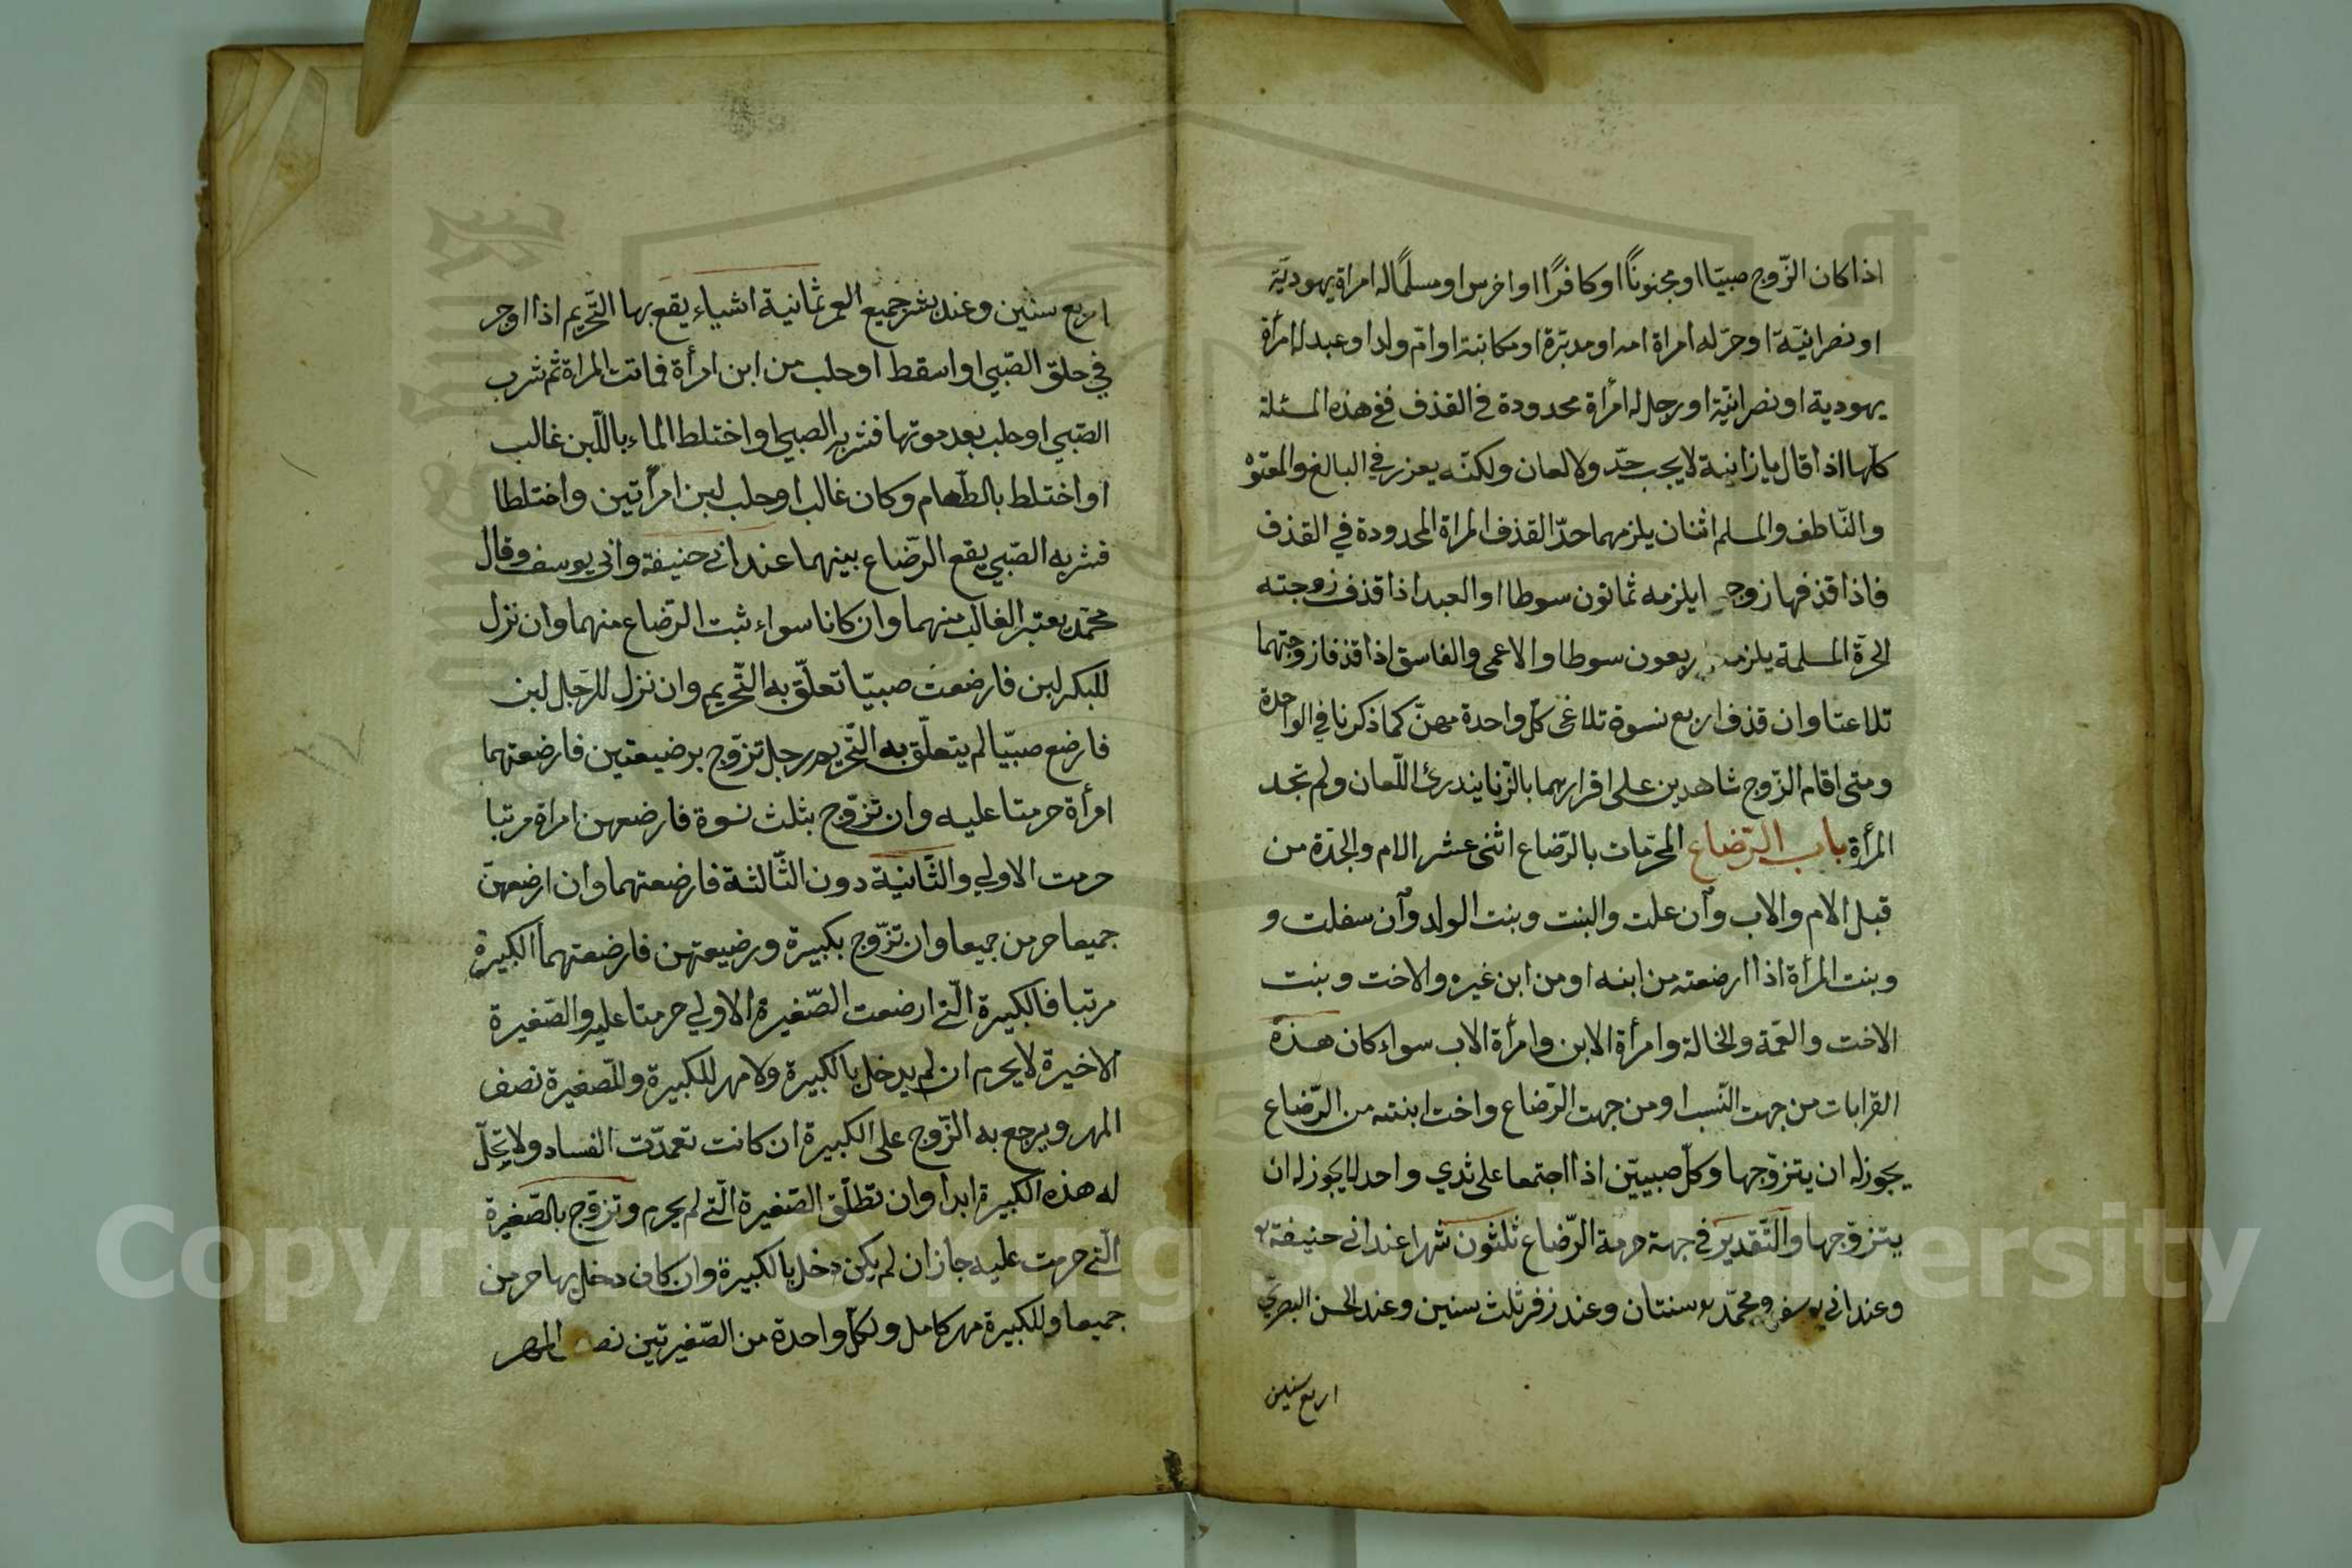 اذا كان الزّوج صبيّا او مجنونًا او كافرًا او اخرس او مسلمًا له امراة يهوديّة
او نصرانيّة او حرّ له امراة امه او مدبّرة او مكاتبة او امّ ولد او عبد له امرأة
يهودية او نصرانيّة او رجل له امرأة محدودة في القذف ففي هذه المسئلة
كلّها اذا قال يا زانية لا يجب حدّ ولا لعان ولكنّه يعزر في البالغ والمعتوْ
والنّاطف والمسلم اثنان يلزمهما حدّ القذف المراة المحدودة في القذف
فاذا قذفها زوجها يلزمه ثمانون سوطا او العبد اذا قذف زوجته
الحرّة المسلمة يلزمه اربعون سوطا والاعمى والفاسق اذا قذفا زوجتهما
تلاعنا وان قذف اربع نسوة تلاعن كلّ واحدة مهنّ كما ذكرنا في الواحدة
ومتى اقام الزّوج شاهدين على اقرارهما بالزّنا يندرئ اللّعان ولم تجد
المرأة باب الرّضاع المحرّمات بالرّضاع اثنى عشر الام والجدّة من
قبل الام والاب وآن علت والبنت وبنت الولد وآن سفلت و
وبنت المرأة اذا ارضعته من ابنه او من ابن غيره والاخت وبنت
الاخت والعمّة والخالة وامرأة الابن وامرأة الاب سواء كان هذه
القرابات من جهت النّسب او من جهت الرّضاع واخت ابنته من الرّضاع
يجوز له ان يتزوّجها وكلّ صبييّن اذا اجتمعا على ثدي واحد لا يجوز له ان
يتزوّجها والتّقدير في جهة حرمة الرّضاع ثلثون شهرا عند ابي حنيفة
وعند ابي يوسف ومحمّد سنتان وعند زفر ثلث سنين وعند الحسن البصريّ
اربع سنين
اربع سنين وعند بشر جميع العمر ثمانية اشياء يقع بها التّحريم اذا اوجر
في حلق الصّبي او اسقط او حلب من ابن امرأة فماتت المراة ثم شرب
الصّبي او حلب بعد موتها فشربه الصبي او اختلط الماء باللّبن غالب
او اختلط بالطّعام وكان غالب او حلب لبن امرأتين واختلطا
فشربه الصّبي يقع الرّضاع بينهما عند ابي حنيفة وابي يوسف وقال
محمّد يعتبر الغالب منهما وان كانا سواء ثبت الرّضاع منهما وان نزل
للبكر لبن فارضعت صبيّا تعلّق به التّحريم وان نزل للرّجل لبن
فارضع صبيّا لم يتعلّق به التّحريم رجل تزوّج برضيعتين فارضعتهما
امرأة حرمتا عليه وان تزوّج بثلث نسوة فارضعهن امراة مرتبا
حرمت الاولي والثّانية دون الثّالثة فارضعتهما وان ارضعهنّ
جميعا حرمن جميعا وان تزّوج بكبيرة ورضيعتهن فارضعتهما الكبيرة
مرتبا فالكبيرة الّتي ارضعت الصّغيرة الاولي حرمتا عليه والصّغيرة
الاخيرة لا يحرم ان لم يدخل بالكبيرة ولا مهر للكبيرة وللصّغيرة نصف
المهر ويرجع به الزّوج على الكبيرة ان كانت تعمدّت الفساد ولا تحلّ
له هذه الكبيرة ابدا وان تطلّق الصّغيرة الّتي لم يحرم وتزوّج بالصّغيرة
الّتي حرمت عليه جاز ان لم يكن دخل بالكبيرة وان كان دخل بها حرمن
جميعا وللكبيرة مهر كامل ولكلّ واحدة من الصّغيرتين نصف المهر
Copyright © King Saud University